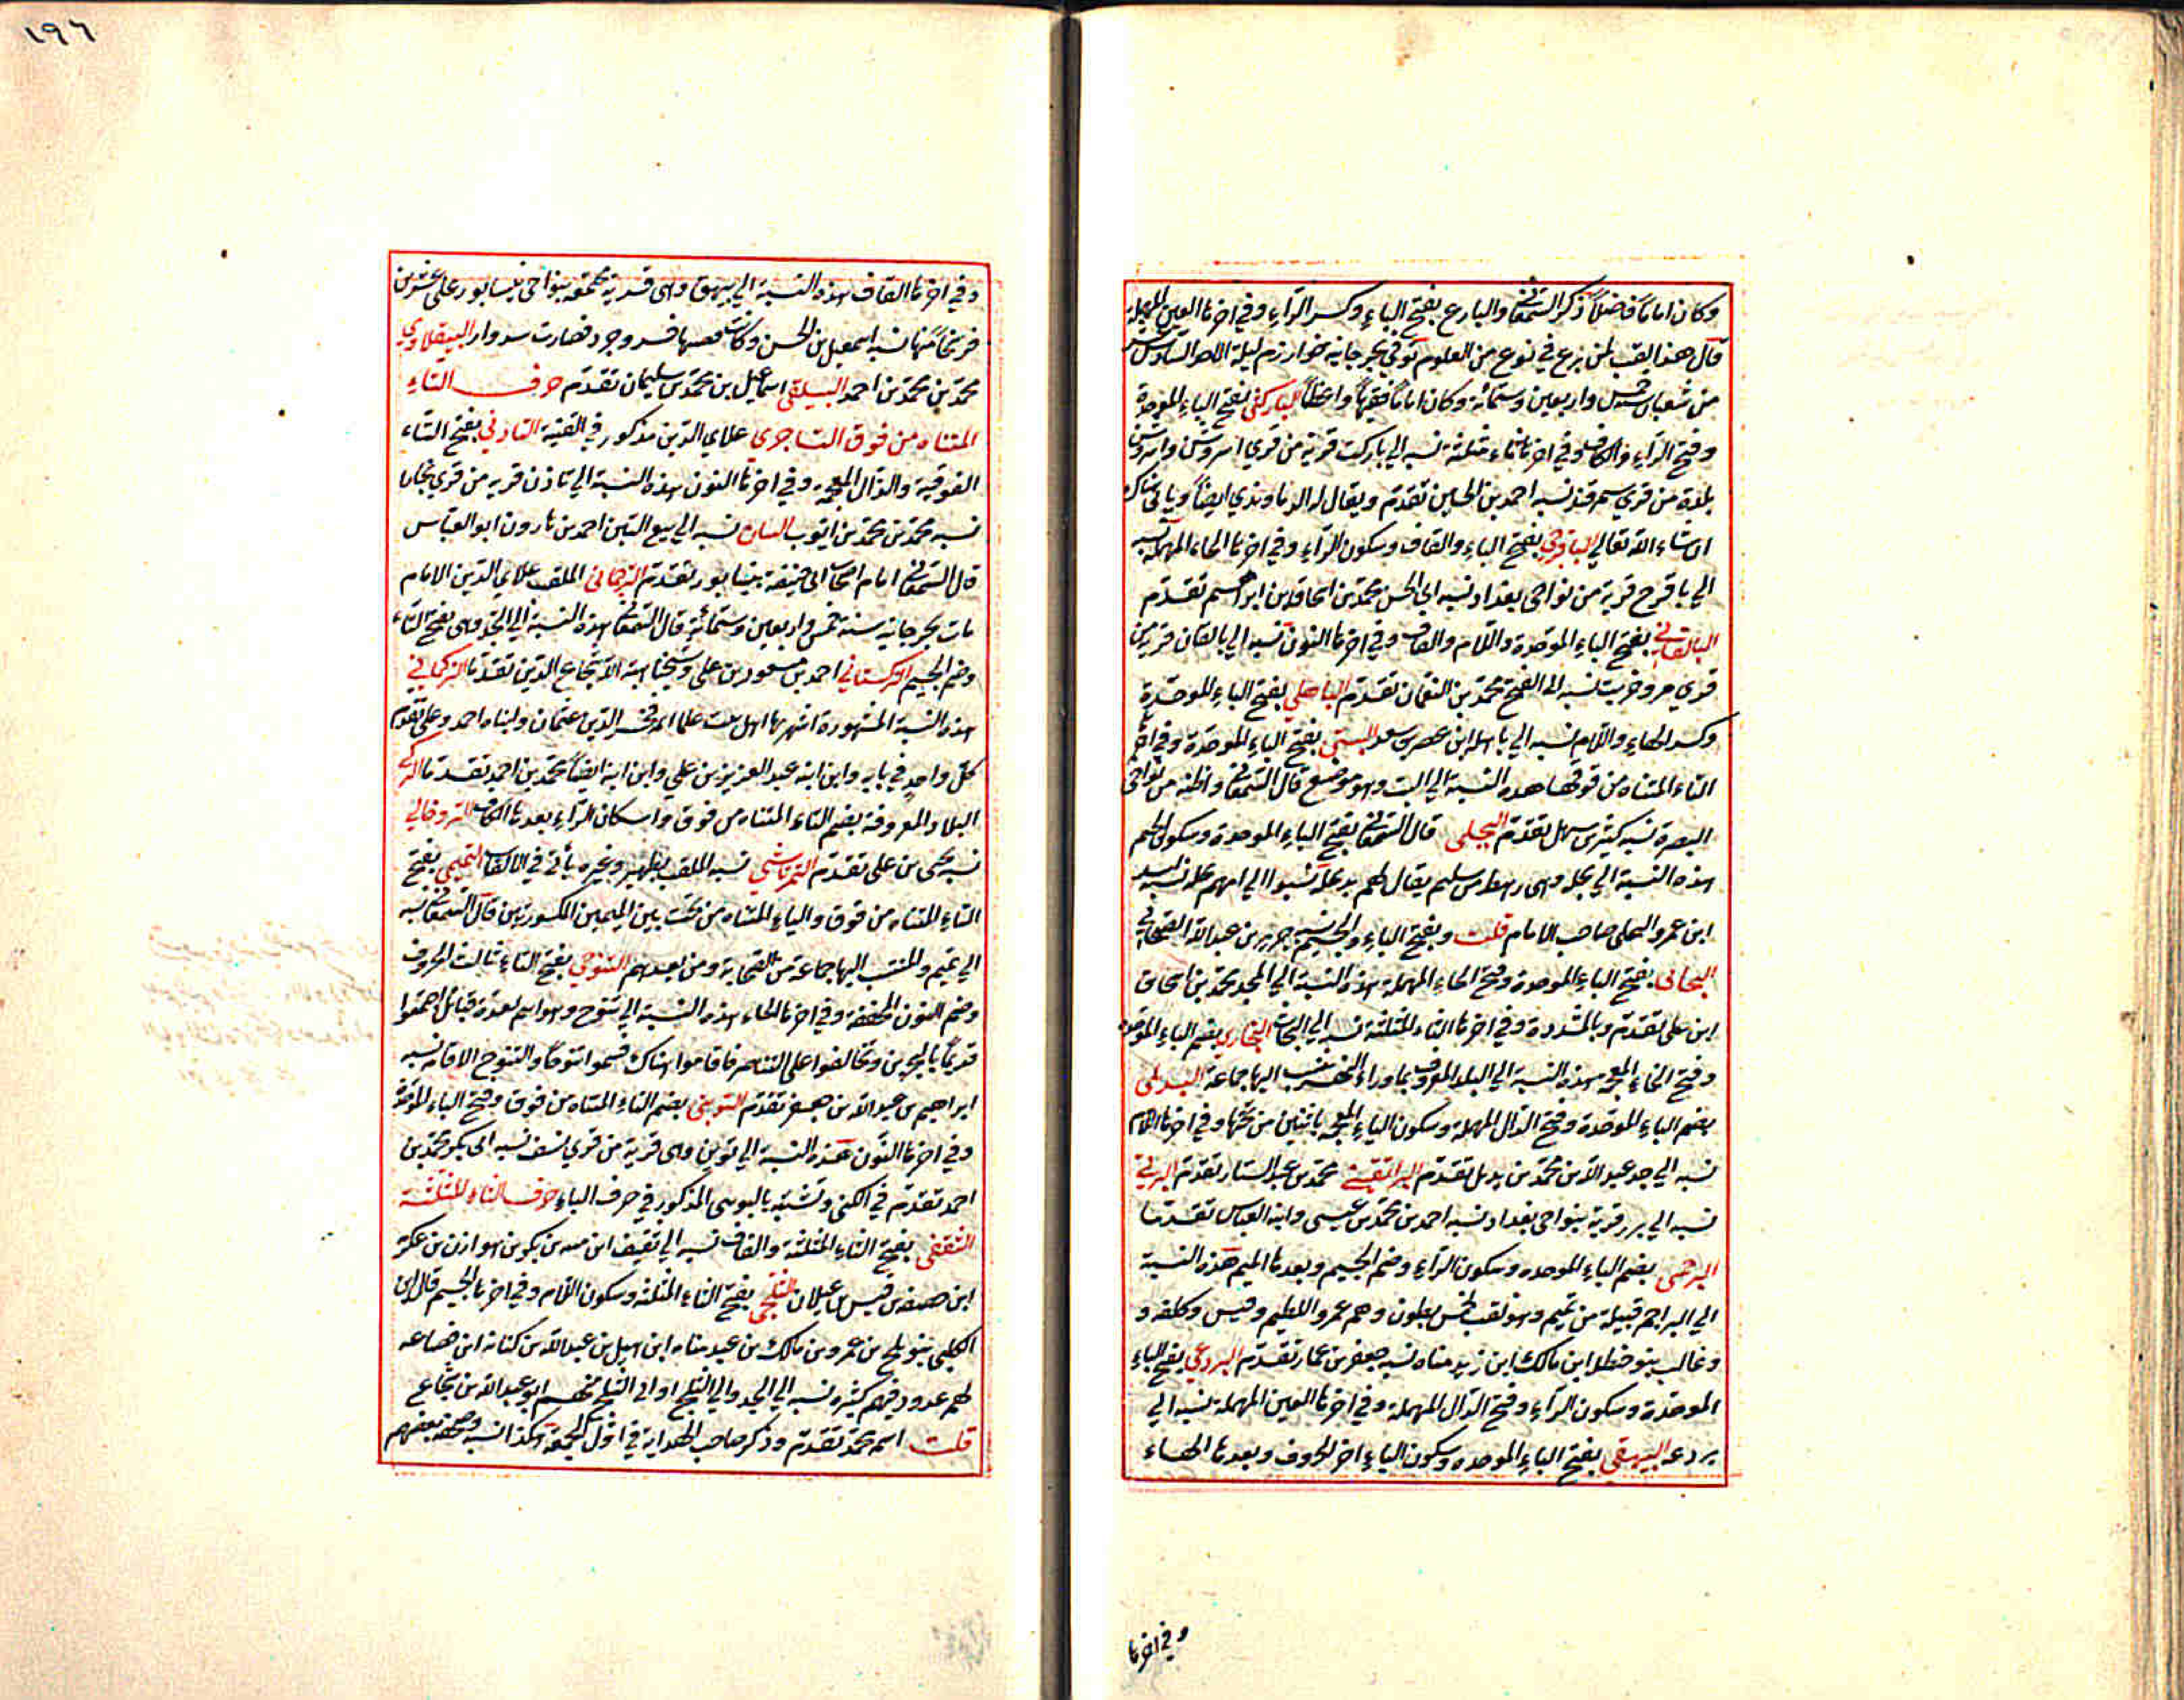 وكان اماما فاضلا ذكره السمعاني والبارع بفتح الباء وكسر الراء وفي اخرها العين المهملة
قال هذا لقب لمن برع في نوع من العلوم توفي بجرجانية خوارزم ليلة الاحد السادس عشر
من شعبان سنة خمس واربعين وستمائة وكان اماما فقيها واعظا الباركثي بفتح الباء الموحدة
وفتح الراء والكاف وفي اخرها ثاء مثلثة نسبه الي باركث قرية من قري اسروشن واسروشن
بلدة من قري سمرقند نسبه احمد بن الحسين تقدم ويقال له الدناوندي ايضا وياتي هناك
ان شاء الله تعالي الباقرحي بفتح الباء والقاف وسكون الراء وفي اخرها الحاء المهملة نسبه
الي باقرح قرية من نواحي بغداد نسبه ابي الحسن محمد بن اسحاق بن ابراهيم تقدم
البالقاني بفتح الباء الموحدة واللام والقاف وفي اخرها النون نسبه الي بالقان قرية من
قري مرو خربت نسبه ابي الفتح محمد بن النعمان تقدم الباهلي بفتح الباء الموحدة
وكسر الهاء واللام نسبه الي باهلة ابن عصر بن سعد البتي بفتح الباء الموحدة وفي اخرها
التاء المثناه من فوقها هذه النسبة الي البت وهو موضع قال السمعاني واظنه من نواحي
البصرة نسبه كثير بن سهل تقدم البجلي قال السمعاني بفتح الباء الموحدة وسكون الجيم
هذه النسبة الي بجلة وهي رهط من سليم يقال لهم بنو بجلة نسبوا الي امهم بجلة نسبه اسد
ابن عمرو البجلي صاحب الامام قلت وبفتح الباء والجيم نسبه جرير بن عبد الله الصحابي
البحاثي بفتح الباء الموحدة وفتح الحاء المهملة هذه النسبة الي الجد محمد بن اسحاق
ابن علي تقدم وبالمشددة وفي اخرها الثاء المثلثة نسبه الي البحاث البخاري بضم الباء الموحدة
وفتح الخاء المعجمة هذه النسبة الي البلد المعروف بما وراء النهر ينسب اليها جماعة البديلي
بضم الباء الموحدة وفتح الدال المهملة وسكون الياء المعجمة باثنتين من تحتها وفي اخرها اللام
نسبه الي جد عبد الله بن محمد بن بديل تقدم البراتقيني محمد بن عبد الستار تقدم البرتي
نسبه الي برر قرية بنواحي بغداد نسبه احمد بن محمد بن عيسي وابنه العباس تقدما
البرجمي بضم الباء الموحده وسكون الراء وضم الجيم وبعدها الميم هذه النسبة
الي البراجم قبيلة من تميم وهو لقب لخمس بطون وهم عمرو والظليم وقيس وكلفه و
وغالب بنو حنظلة ابن مالك ابن زيد مناه نسبه جعفر بن عمار تقدم البردعي بفتح الباء
الموحدة وسكون الراء وفتح الدال المهملة وفي اخرها العين المهملة نسبه الي
بردعه البيهقي بفتح الباء الموحده وسكون الياء اخر الحروف وبعدها الهاء
وفي اخرها
١٩٦
وفي اخرها القاف هذه النسبة الي بيهق وهي قرية مجتمعة بنواحي نيسابور علي عشرين
فرسخا منها نسبه اسمعيل بن الحسن وكانت قصبتها خسروجرد فصارت سبزوار البيقلاوي
محمد بن محمد بن احمد البيلقي اسماعيل بن محمد بن سليمان تقدم حرف التاء
المثناه من فوق التاجري علاي الدين مذكور في القنية التاذني بفتح التاء
الفوقية والذال المعجمة وفي اخرها النون هذه النسبة الي تاذن قرية من قري بخارا
نسبه محمد بن محمد بن ايوب التبان نسبه الي بيع التبن احمد بن هارون ابو العباس
قال السمعاني امام اصحاب ابي حنيفة بنيسابور تقدم الترجماني الملقب علاي الدين الامام
مات بجرجانية سنة خمس واربعين وستمائة قال السمعاني هذه النسبة الي الجد وهي بفتح التاء
وضم الجيم التركستاني احمد بن مسعود بن علي وشيخنا هبة الله شجاع الدين تقدما التركماني
هذه النسبة المشهورة اشهر بها اهل بيت علما ائمة فخر الدين عثمان وابناه احمد وعلي تقدم
كل واحد في بابه وابن ابنه عبد العزيز بن علي وابن ابنه ايضا محمد بن احمد تقدما التركي
البلاد المعروفة بضم التاء المثناه من فوق واسكان الراء بعدها الكاف التروخالي
نسبه يحيي بن علي تقدم التمرتاشي نسبه الملقب بظهير وغيره يأتي في الالقاب التميمي بفتح
التاء المثناه من فوق والياء المثناه من تحت بين الميمين المكسورتين قال السمعاني نسبه
الي تميم والمنتسب اليها جماعة من الصحابة ومن بعدهم التنوخي بفتح التاء ثالث الحروف
وضم النون المخففة وفي اخرها الخاء هذه النسبة الي تنوخ وهو اسم لعدة قبائل اجتمعوا
قديما بالبحرين وتحالفوا علي التناصر فاقاموا هناك فسموا تنوخا والتنوخ الاقامة نسبه
ابراهيم بن عبد الله بن جعفر تقدم التوبني بضم التاء المثناه من فوق وفتح الباء الموحدة
وفي اخرها النون هذه النسبة الي توبن وهي قرية من قري نسف نسبه ابي بكر محمد بن
احمد تقدم في الكني وتشتبه بالبوسي المذكور في حرف الباء حرف الثاء المثلثة
الثقفي بفتح الثاء المثلثة والقاف نسبه الي ثقيف ابن منبه بن بكر بن هوازن بن عكرمة
ابن خصفه بن قيس بن عيلان الثلجي بفتح الثاء المثلثة وسكون اللام وفي اخرها الجيم قال ابن
الكلبي بنو ثلج بن عمرو بن مالك بن عبد مناه ابن هبل بن عبد الله بن كنانه ابن قضاعه
لهم عدد وفيهم كثيره نسبه الي الجد والي الثلج او الي الثلج منهم ابو عبد الله بن شجاع
قلت اسمه محمد تقدم وذكر صاحب الهداية في اول الجمعة هكذا نسبه وصحفه بعضهم